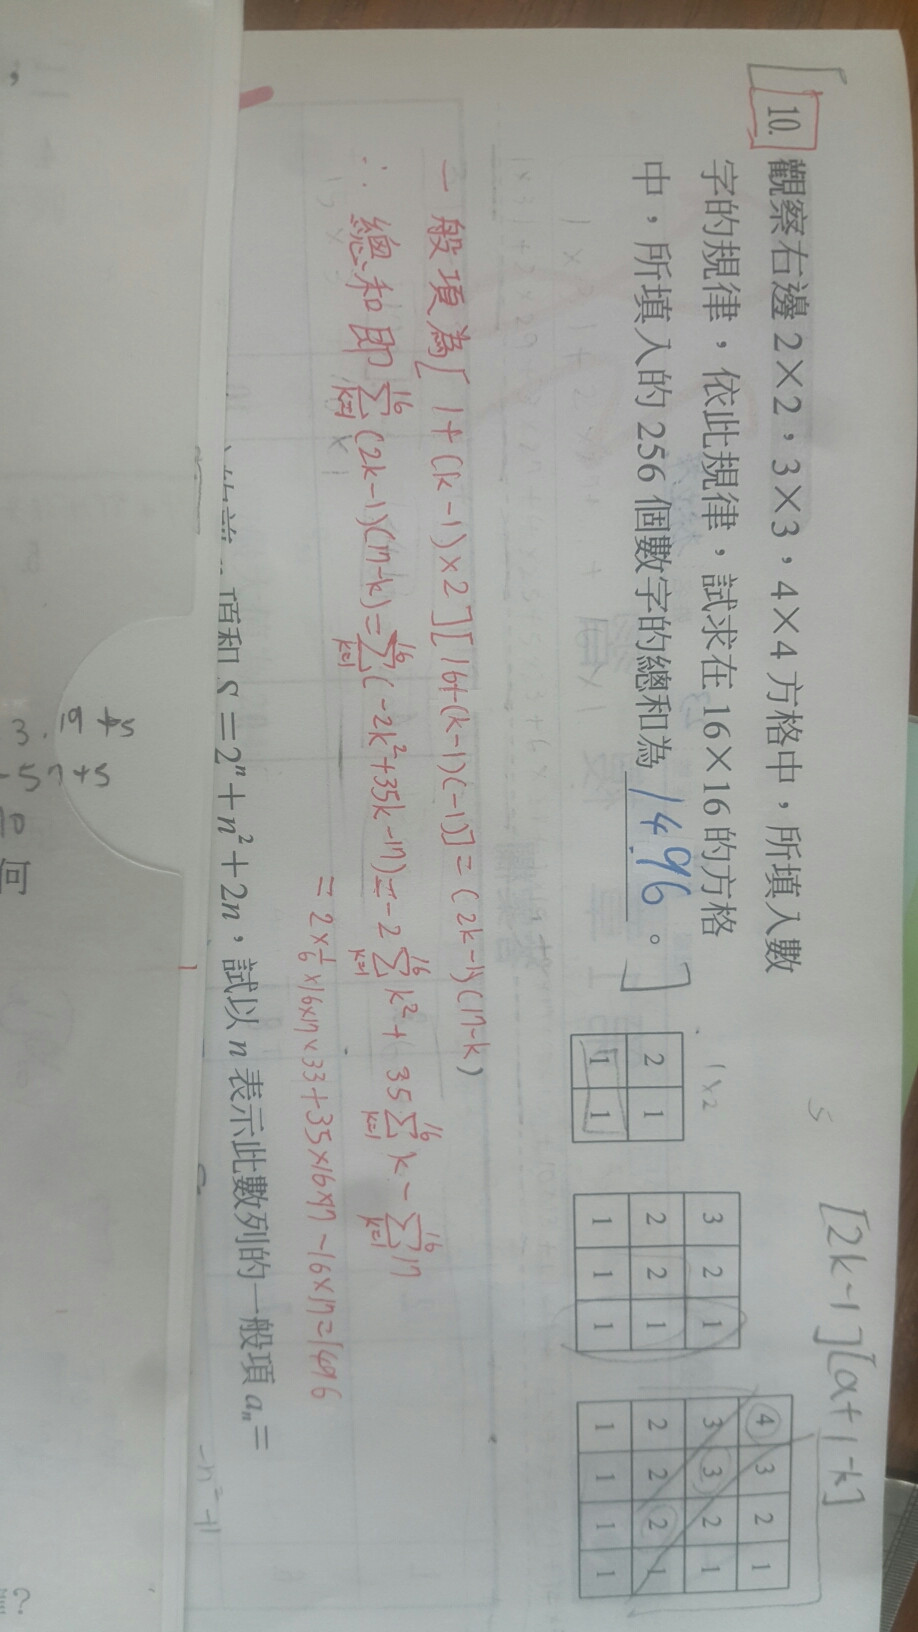 10. 觀察右邊 2×2,3×3,4×4 方格中,所填入數
字的規律,依此規律,試求在 16×16 的方格
中,所填入的 256 個數字的總和為 1496 。
1×2
5
[2k-1][a+1-k]
2 1
1 1
3 2 1
2 2 1
1 1 1
4 3 2 1
3 3 2 1
2 2 2 1
1 1 1 1
一般項為[1+(k-1)×2][16+(k-1)(-1)]=(2k-1)(17-k)
∴ 總和即 16Σk=1 (2k-1)(17-k)=16Σk=1(-2k²+35k-17)=-2 16Σk=1 k²+35 16Σk=1 k-16Σk=1 17
=2×1/6×16×17×33+35×16×17-16×17=1496
項和 S =2ⁿ+n²+2n,試以 n 表示此數列的一般項 aₙ=
-n²+
3.
-5n+5
何
?